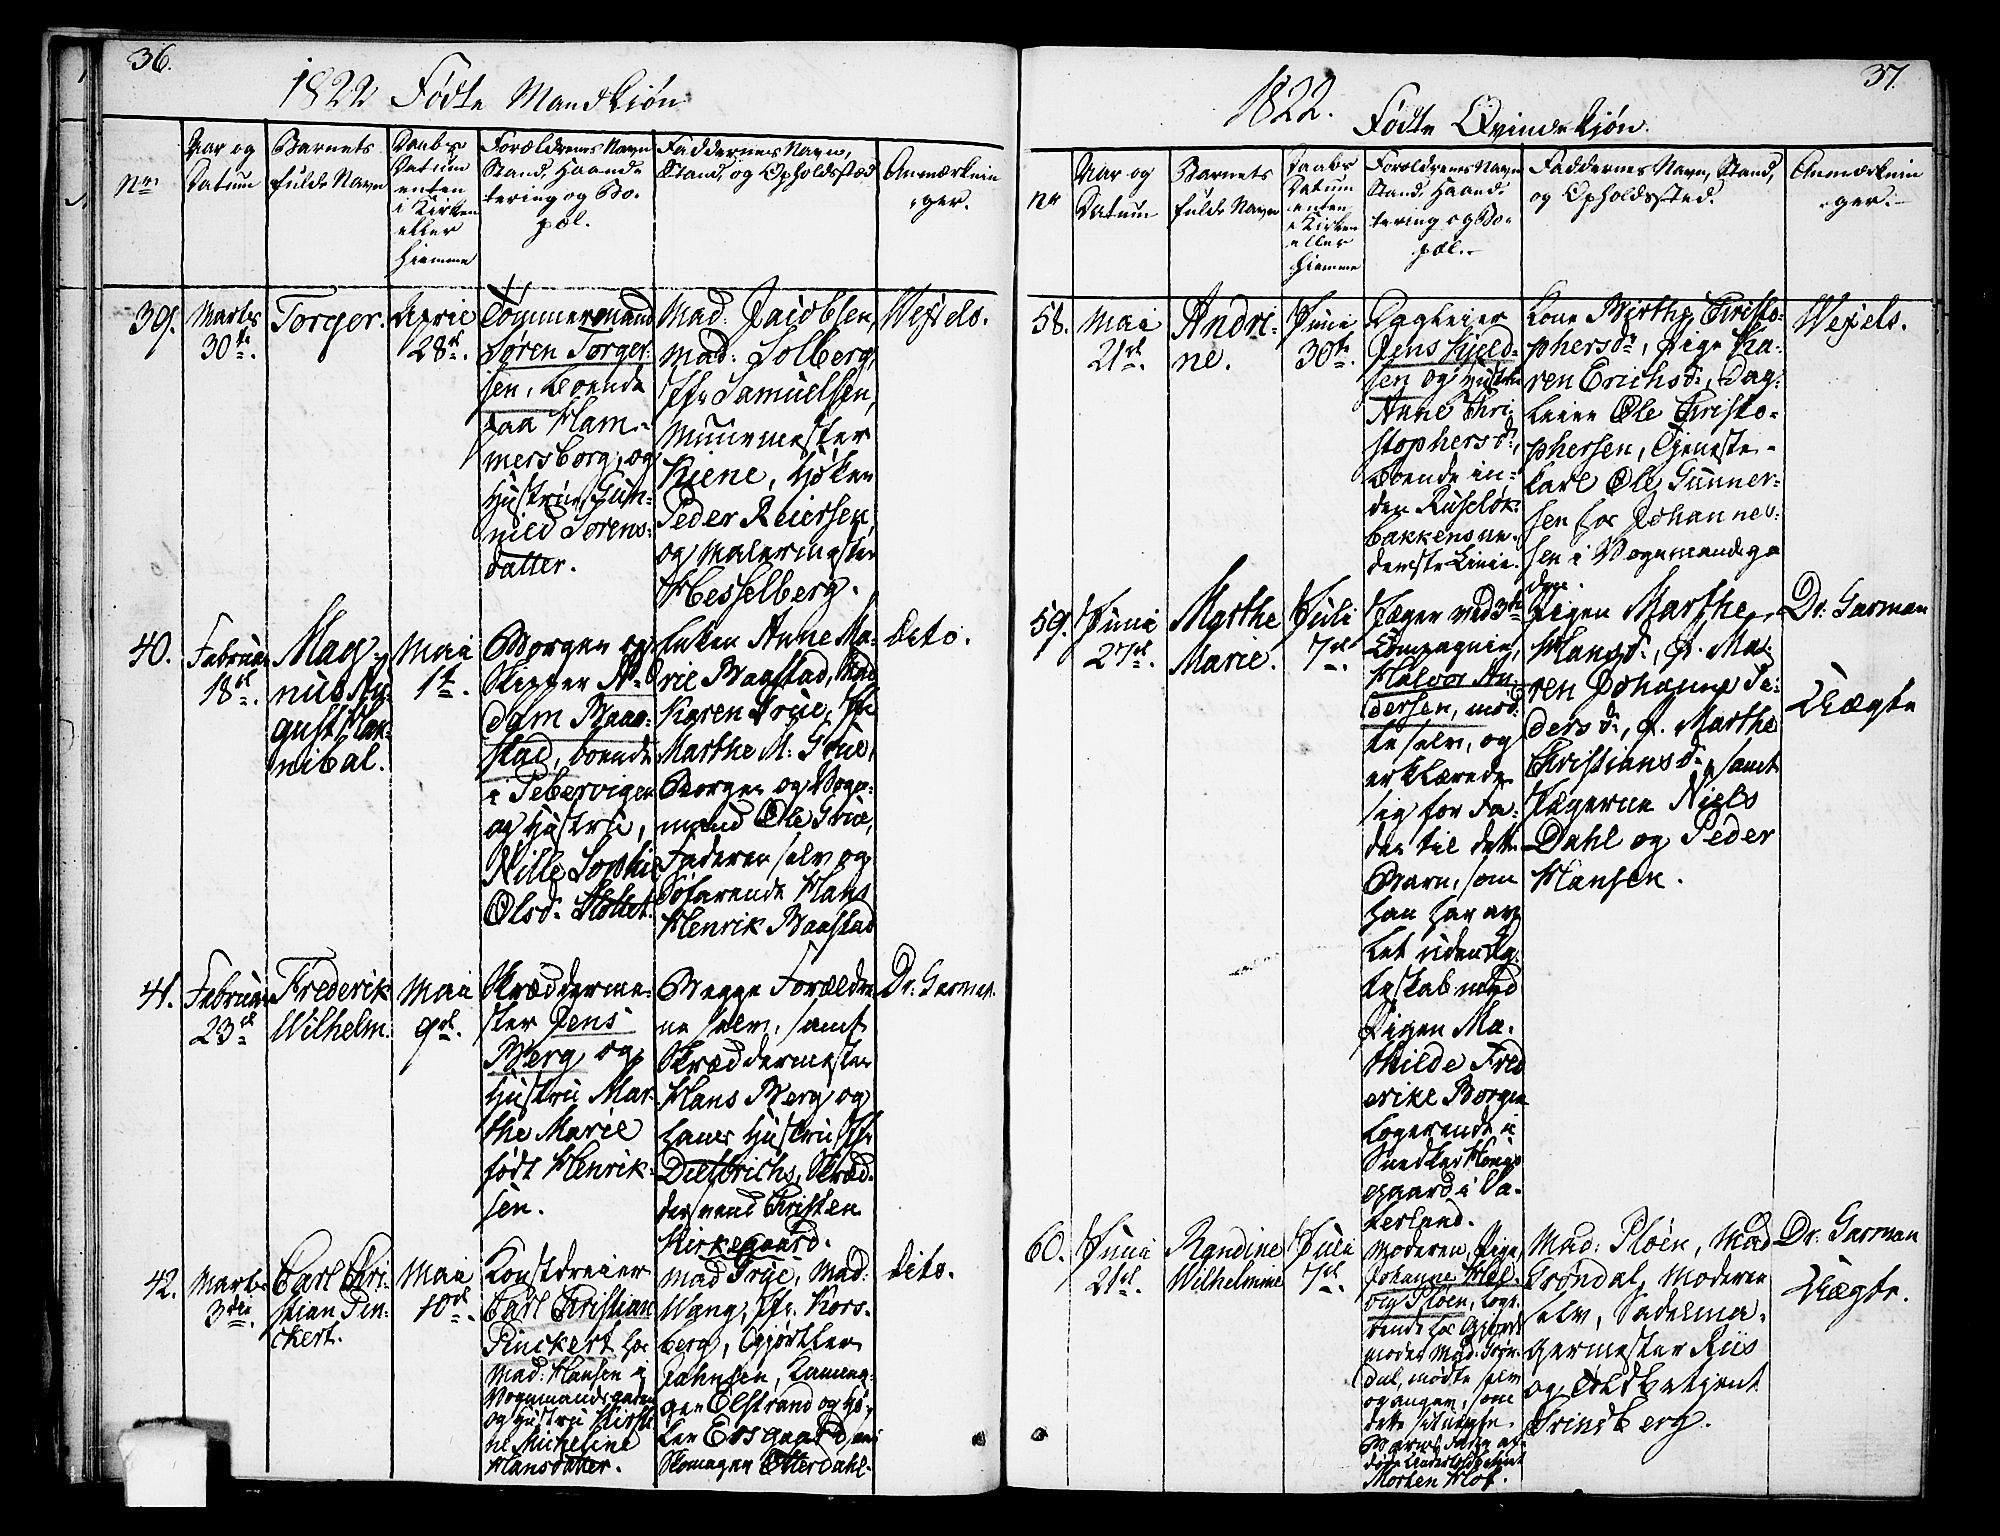 36.
1822 Fødte Mandkiøn
Nr.
Aar og
Datum
Barnets
fulde Navn
Daabs
Datum
enten
i Kirken
eller
hiemme
Forældrenes Navn
Stand, Haand-
tering og Bo-
pæl.
Faddernes Navn,
Stand, og Opholdssted
Anmærknin
ger.
39.
Marts
30te.
Torger.
April
28de.
Tømmermand
Søren Torger-
sen, boende
paa Ham-
mersborg, og
Hustrue Gun-
nild Sørens-
datter.
Mad: Jacobsen,
Mad: Solberg,
Jfr. Samuelsen,
Muurmester
Kiene, Høker
Peder Reiersen,
og Malermester
Hesselberg.
Wexels.
40.
Februar
18de.
Mag-
nus Au-
gust Han-
nibal.
Mai
1te.
Borger og
Skipper A-
dam Baas-
stad, boende
i Pebervigen
og Hustru,
Nille Sophie
Olsd.
Enken Anne Ma-
rie Bagstad, Mad
Karen Grue, Jfr
Marthe M. Grue,
Borger og Vogn-
mand Ole Grue,
Faderen selv og
Søfarende Hans
Henrik Baastad
dito.
41.
Februar
23de
Frederik
Wilhelm.
Mai
9de.
Skræderme-
ster Jens
Berg og
Hustru Mar-
the Marie
født Henrik-
sen.
Begge Forældre
ne selv, samt
Skræddermester
Hans Berg og
hans Hustru Jfr
Diettrichs, Skræd-
dersvend Christen
Kirkegaard.
Dr: Garman.
42.
Marts
3die
Carl Chri-
stian Pin-
ckert.
Mai
10de.
Konstdreier
Carl Christian
Pinckert hos
Mad: Hansen i
Vognmandsgaden
og Hustru Kirsti-
ne Micheline
Hansdatter.
Mad Frye, Mad:
Wang, Jfr. Kors-
berg, Gjørtler
Jahnsen,
Elstrand og Hø-
ker Eesgaard,
Skomager Otterdahl.
dito.
37.
1822. Fødte Qvindekjøn.
Nr
Aar og
Datum
Barnets
fulde Navn
Daabs
Datum
enten
i Kirken
eller
hiemme
Forældrenes Navn
Stand, Haand-
tering og Bo-
pæl.
Faddernes Navn, Stand,
og Opholdssted.
Anmærknin
ger.
58.
Mai
21de.
Andri-
ne.
Juni
30te.
Dagleier
Jens Kield-
sen og Hustru
Anne Chri-
stophersd:,
boende in-
den Ruseløk-
bakkens ne-
derste Linie.
Kone Birthe Christo-
phersd:, Pige Ka-
ren Erichsd:, Dag-
leier Ole Christo-
phersen, Tjeneste-
karl Ole Gunner-
sen hos Johannes-
sen i Vognmandsga
den.
Wexels.
59.
Juni
27de.
Marthe
Marie.
Juli
7de.
Jæger ved 3die
Compagnie,
Halvor An-
dersen, mød-
te selv, og
erklærede
sig for Fa-
der til dette
Barn, som
han har av-
let uden Æg-
teskab med
Pigen Ma-
thilde Fred
erike Borgen
Logerende i
Snedker Hongs
egaard i Va-
terland.
Pigen Marthe
Hansd:, P. Ma-
ren Johanne Pe-
dersd:, P. Marthe
Christiansd:, samt
Jægerne Niels
Dahl og Peder
Hansen.
Dr: Garman
Uægte
60.
Juni
21de.
Randine
Wilhelmine
Juli
7de.
Moderen, Pige
Johanne Hed-
vig Ploen, loge-
rende hos
moder Mad: Grøn-
dal, mødte selv
og angav, som
dette sit uægte
Barns Fader
Morten Hof.
Mad: Ploen, Mad
Grøndal, Moderen
selv, Sadelma-
germester Riis
og Toldbetjent
Grindberg.
Dr: Garman
Uægte.